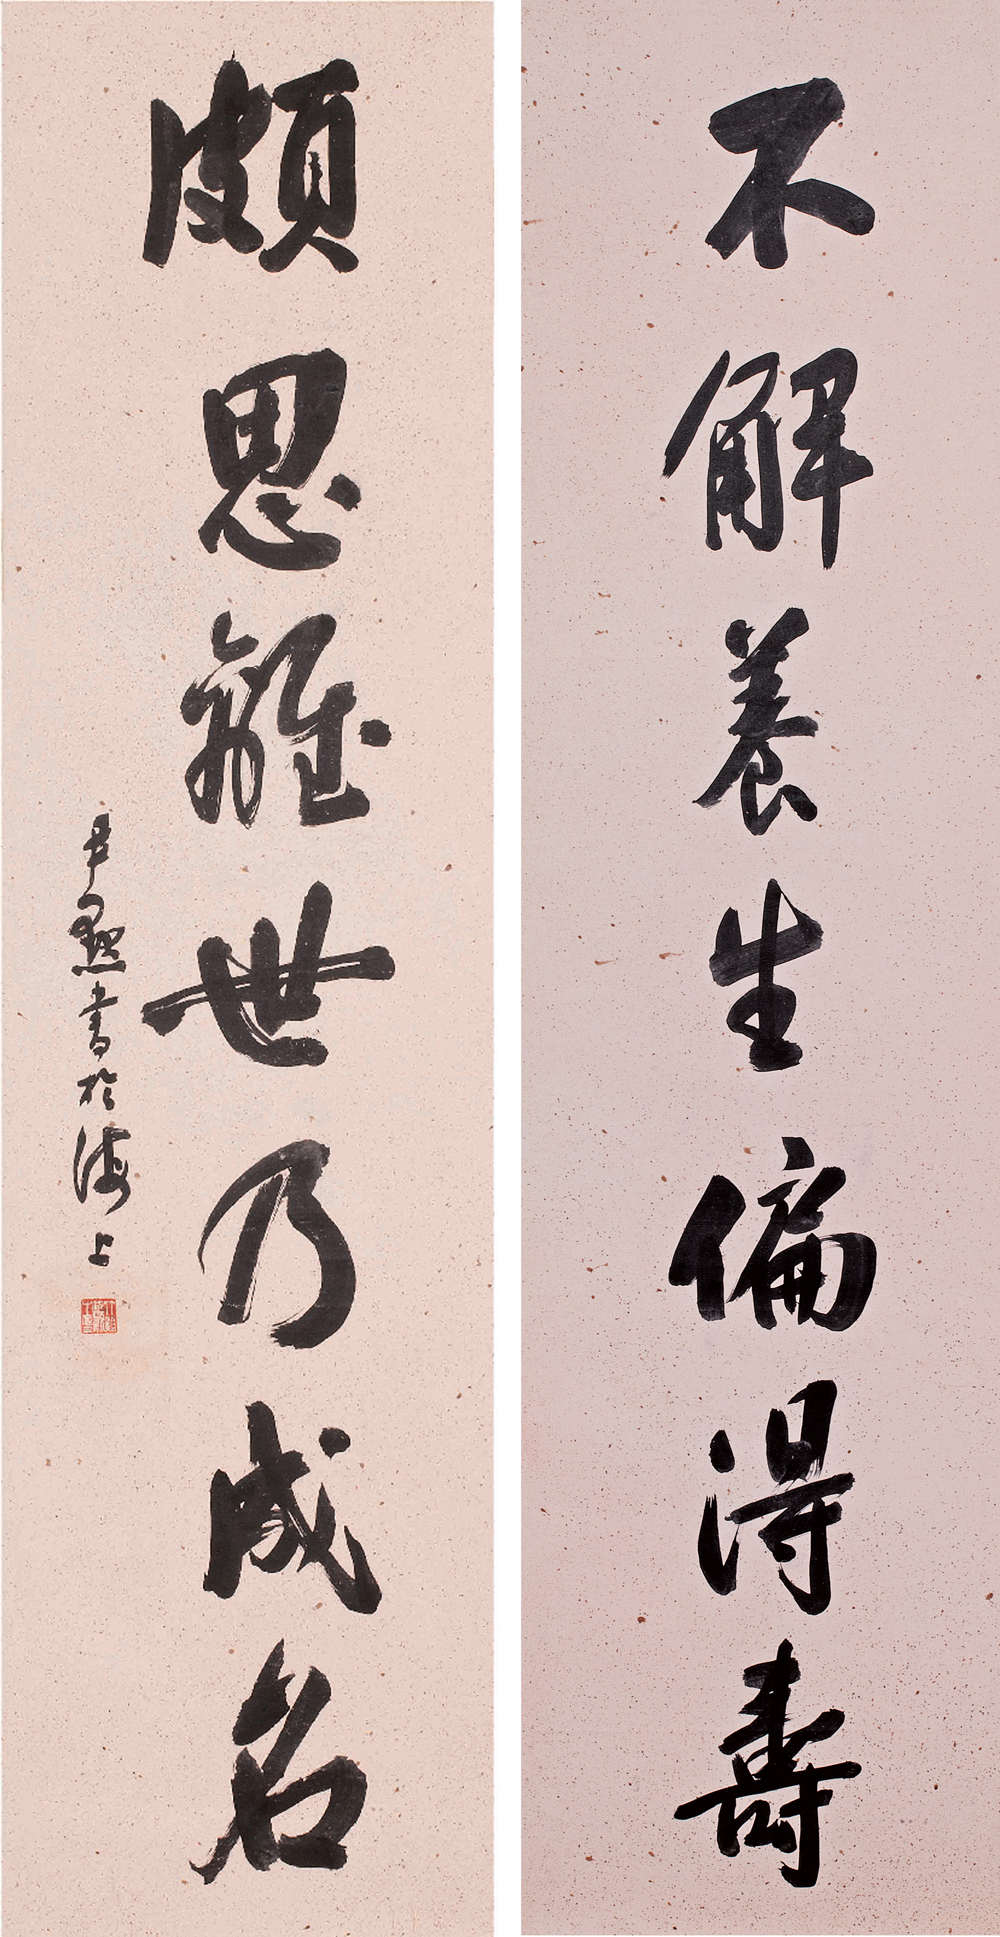 不解養生偏得壽
頗思離世乃成名
尹默書於海上